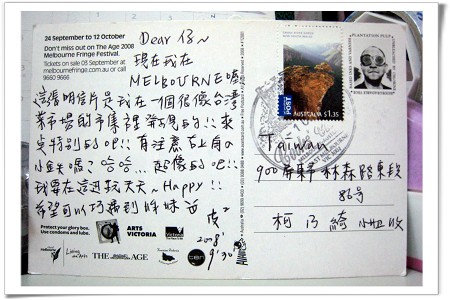 24 September to 12 October
Don't miss out on The Age 2008
Melbourne Fringe Festival.
Tickets on sale 03 September at
melbournefringe.com.au or call
9660 9666
Dear 13~
現在我在
MELBOURNE喔
這張明信片是我在一個很像台灣
菜市場的市集裡
特別的吧!! 有注意右上角の
小鉄嗎?哈哈... 超像的吧!!
我要在這邊玩 天天. Happy!!
希望可以巧遇到妹妹
2008'
9'30
Protect your glory box.
Use condoms and lube.
ARTS
VICTORIA
Victoria
THE AGE
Living
Arts
ten
POST
AUSTRALIA $1.35
PLANTATION PULP
Taiwan
900 屏東市林森路東段
86号
柯乃綺 小姐收